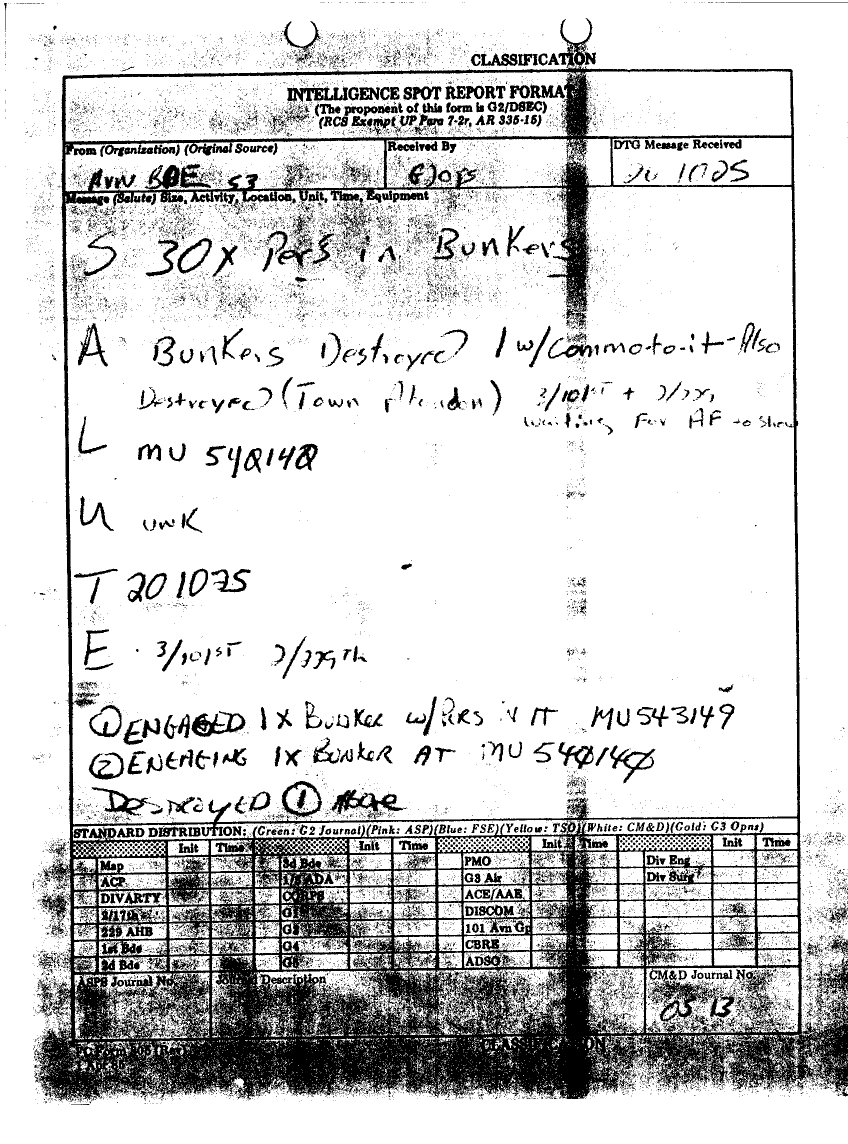 CLASSIFICATION
INTELLIGENCE SPOT REPORT FORMAT
(The proponent of this form is G2/DSEC)
(RCS Exempt UP Para 7-2r, AR 335-15)
From (Organization) (Original Source) Received By DTG Message Received
AVN BDE S3 G3 ops 20 1025
Message (Salute) Size, Activity, Location, Unit, Time, Equipment
S 30x Pers in Bunkers
A Bunkers Destroyed 1 w/Commo-to-it-Also
Destroyed (Town) 3/101ST + 2/229
waiting For AF to show
L MU 540140
U UNK
T 201025
E 3/101ST 2/229Th
① ENGAGED 1X BUNKER w/PERS IN IT MU543149
② ENGAGING 1X BUNKER AT MU 540140
DESTROYED ①
STANDARD DISTRIBUTION: (Green: G2 Journal)(Pink: ASP)(Blue: FSE)(Yellow: TSO)(White: CM&D)(Gold: G3 Opns)
Init Time Init Time Init Time Init Time
Map 3d Bde PMO Div Eng
ACP ADA G3 Air Div Surg
DIVARTY CORPS ACE/AAE
2/17th G1 DISCOM
229 AHB 101 Avn Gp
1st Bde G4 CBRE
2d Bde G5 ADSO
ASPS Journal No. Description CM&D Journal No.
05 13
CLASSIFICATION